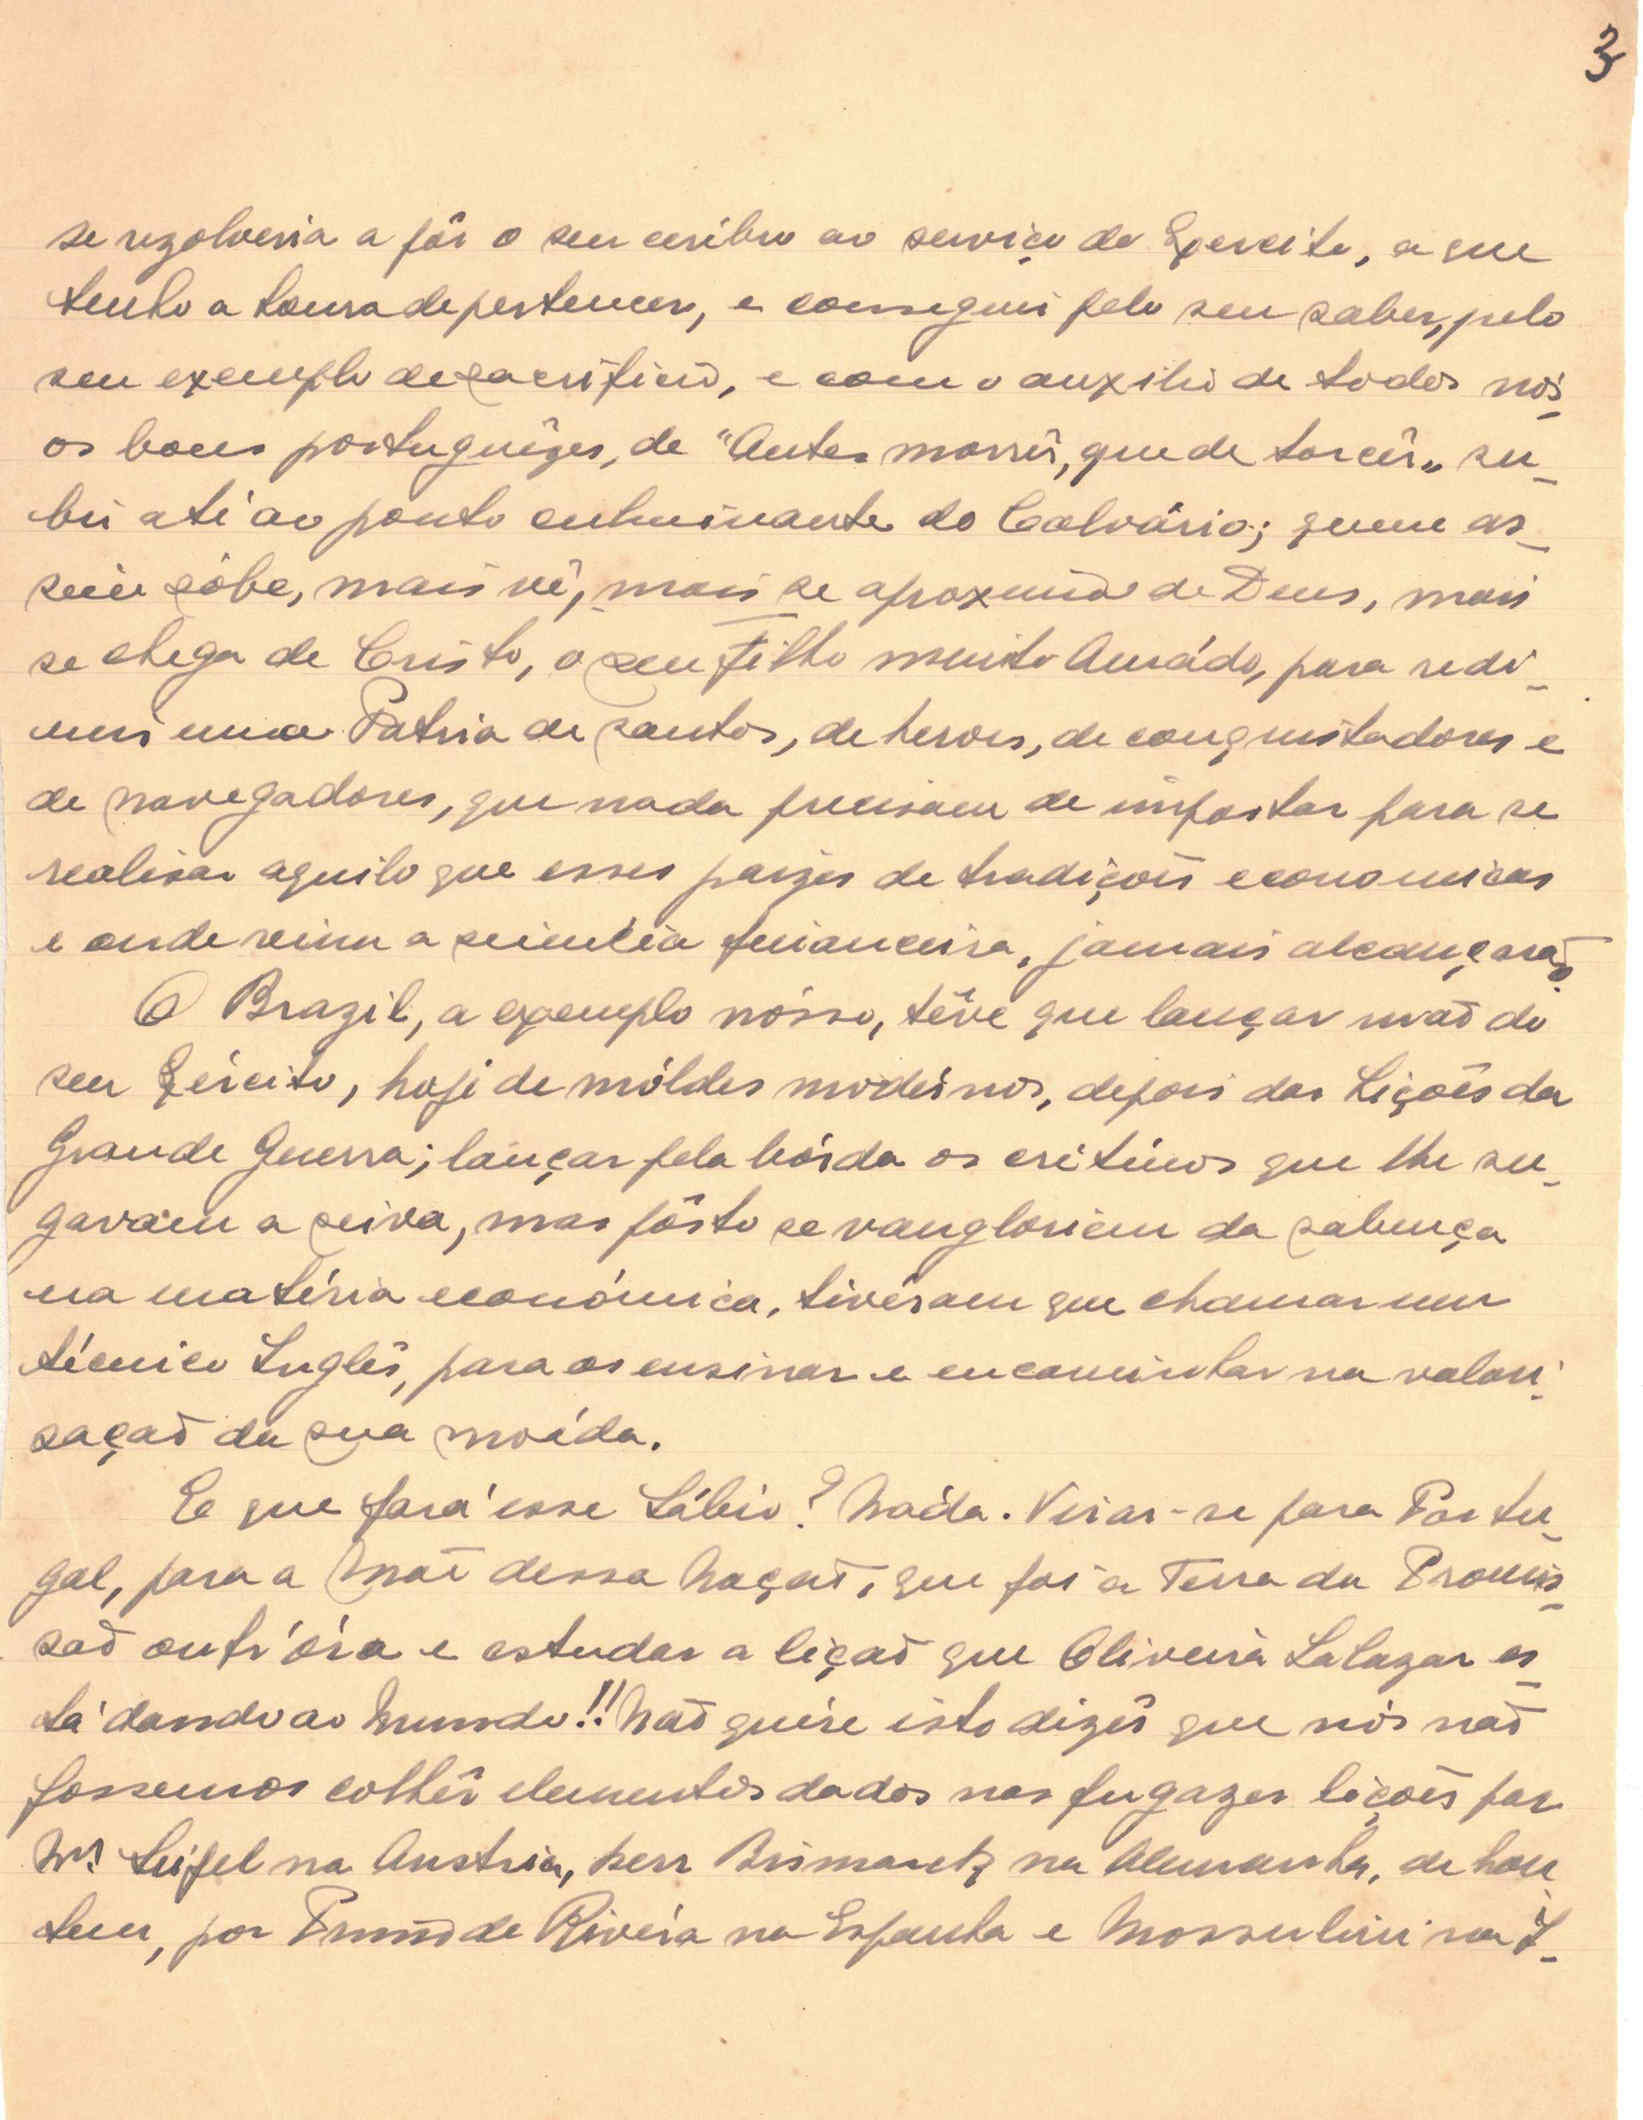 3
se rezolveria a pôr o seu cerébro ao serviço do Exercito, a que
tenho a honra de pertencer, e conseguir pelo seu saber, pelo
seu exemplo de sacrificio, e com o auxilio de todos nós,
os bons portuguêzes, de "Antes morrêr, que de torcêr„ su-
bir até ao ponto culminante do Calvário; quem as-
sim sóbe, mais vê, mais se aproxima de Deus, mais
se chega de Cristo, o seu Filho muito Amádo, para redi-
mir uma Patria de santos, de herois, de conquistadores e
de navegadores, que nada precisam de importar para se
realisar aquilo que esses paizes de tradiçoẽs economicas
e onde reina a sciencia financeira, jamais alcançaraõ.
O Brazil, a exemplo nósso, têve que lançar maõ do
seu Exército, hoje de móldes modérnos, depois das Liçoẽs da
Grande Guerra; lançar pela bórda os cretinos que lhe su-
gavam a seiva, mas pôsto se vangloriem da sabença
na matéria económica, tivéram que chamar um
técnico Inglês, para os ensinar e encaminhar na valori-
saçaõ da sua moéda.
E que fará esse Sábio? Náda. Virar-se para Portu-
gal, para a Maẽ dessa Naçaõ, que foi a Terra da Promis-
saõ outr'óra e estudar a liçaõ que Oliveira Salazar es-
tá dando ao Mundo!! Naõ quére isto dizêr que nós naõ
fossemos colhêr elementos dados nas fugazes liçoẽs por
Mr. Seipel na Austria, herr Bismarck na Alemanha, de hon-
tem, por Primo de Rivéra na Espanha e Mossulini na I-